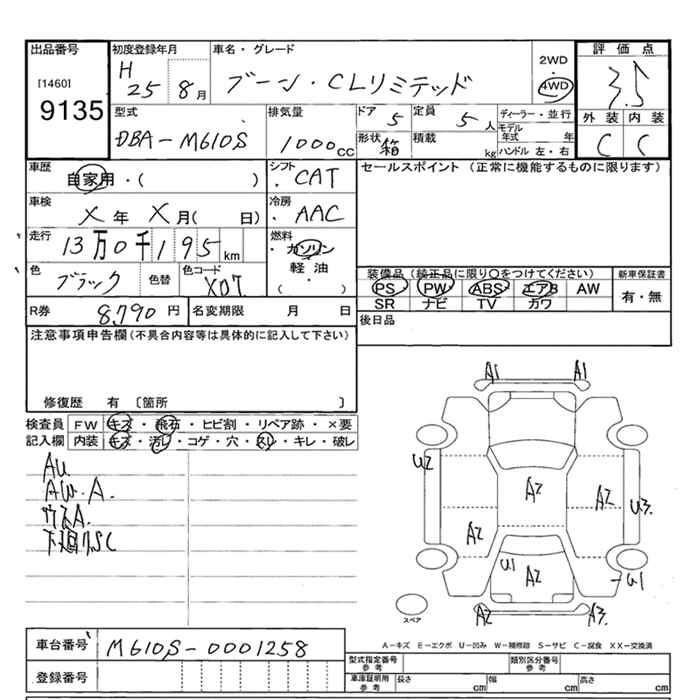 出品番号 初度登録年月 車名・グレード 2WD 評価点
[1460] H 25 8月 ブーン・CLリミテッド 4WD 3.5
9135 型式 排気量 ドア 定員 ディーラー・並行 外装 内装
DBA-M610S 1000cc 5 5人 モデル年式 年 C C
形状 箱 積載 kg ハンドル 左・右
車歴 シフト セールスポイント (正常に機能するものに限ります)
自家用・( ) ・CAT
車検 冷房
X年X月( 日) ・AAC
走行 燃料
13万0千195km ・ガソリン
色 色替 色コード 軽油 装備品 (純正品に限り○をつけてください) 新車保証書
ブラック X07 ( ・ ) PS PW ABS エアB AW 有・無
SR ナビ TV カワ
R券 8,790円 名変期限 月 日 後日品
注意事項申告欄 (不具合内容等は具体的に記入して下さい)
修復歴 有 〔箇所 〕
検査員 FW キズ・飛石・ヒビ割・リペア跡・×要
記入欄 内装 キズ・汚レ・コゲ・穴・スレ・キレ・破レ
AU.
AW.A.
下廻サSC
A1 A1
U2 A2 A2 U3.
A2
U1 A2 U1
A2 A3.
スペア
A-キズ E-エクボ U-凹み W-補修跡 S-サビ C-腐食 XX-交換済
車台番号 M610S-0001258
登録番号
型式指定番号 参考 類別区分番号 参考
車庫証明用 参考 長さ cm 幅 cm 高さ cm